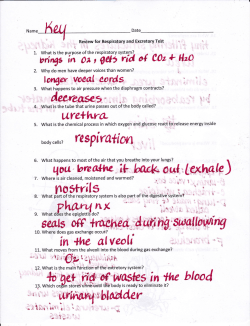 Name Key Date
Review for Respiratory and Excretory Test
1. What is the purpose of the respiratory system?
brings in O2, gets rid of CO2 + H2O
2. Why do men have deeper voices than women?
longer vocal cords
3. What happens to air pressure when the diaphragm contracts?
decreases
4. What is the tube that urine passes out of the body called?
urethra
5. What is the chemical process in which oxygen and glucose react to release energy inside
body cells? respiration
6. What happens to most of the air that you breathe into your lungs?
you breathe it back out (exhale)
7. Where is air cleaned, moistened and warmed?
nostrils
8. What part of the respiratory system is also part of the digestive system?
pharynx
9. What does the epiglottis do?
seals off trachea during swallowing
10. Where does gas exchange occur?
in the alveoli
11. What moves from the alveoli into the blood during gas exchange?
O2
12. What is the main function of the excretory system?
to get rid of wastes in the blood
13. Which organ stores urine until the body is ready to eliminate it?
urinary bladder